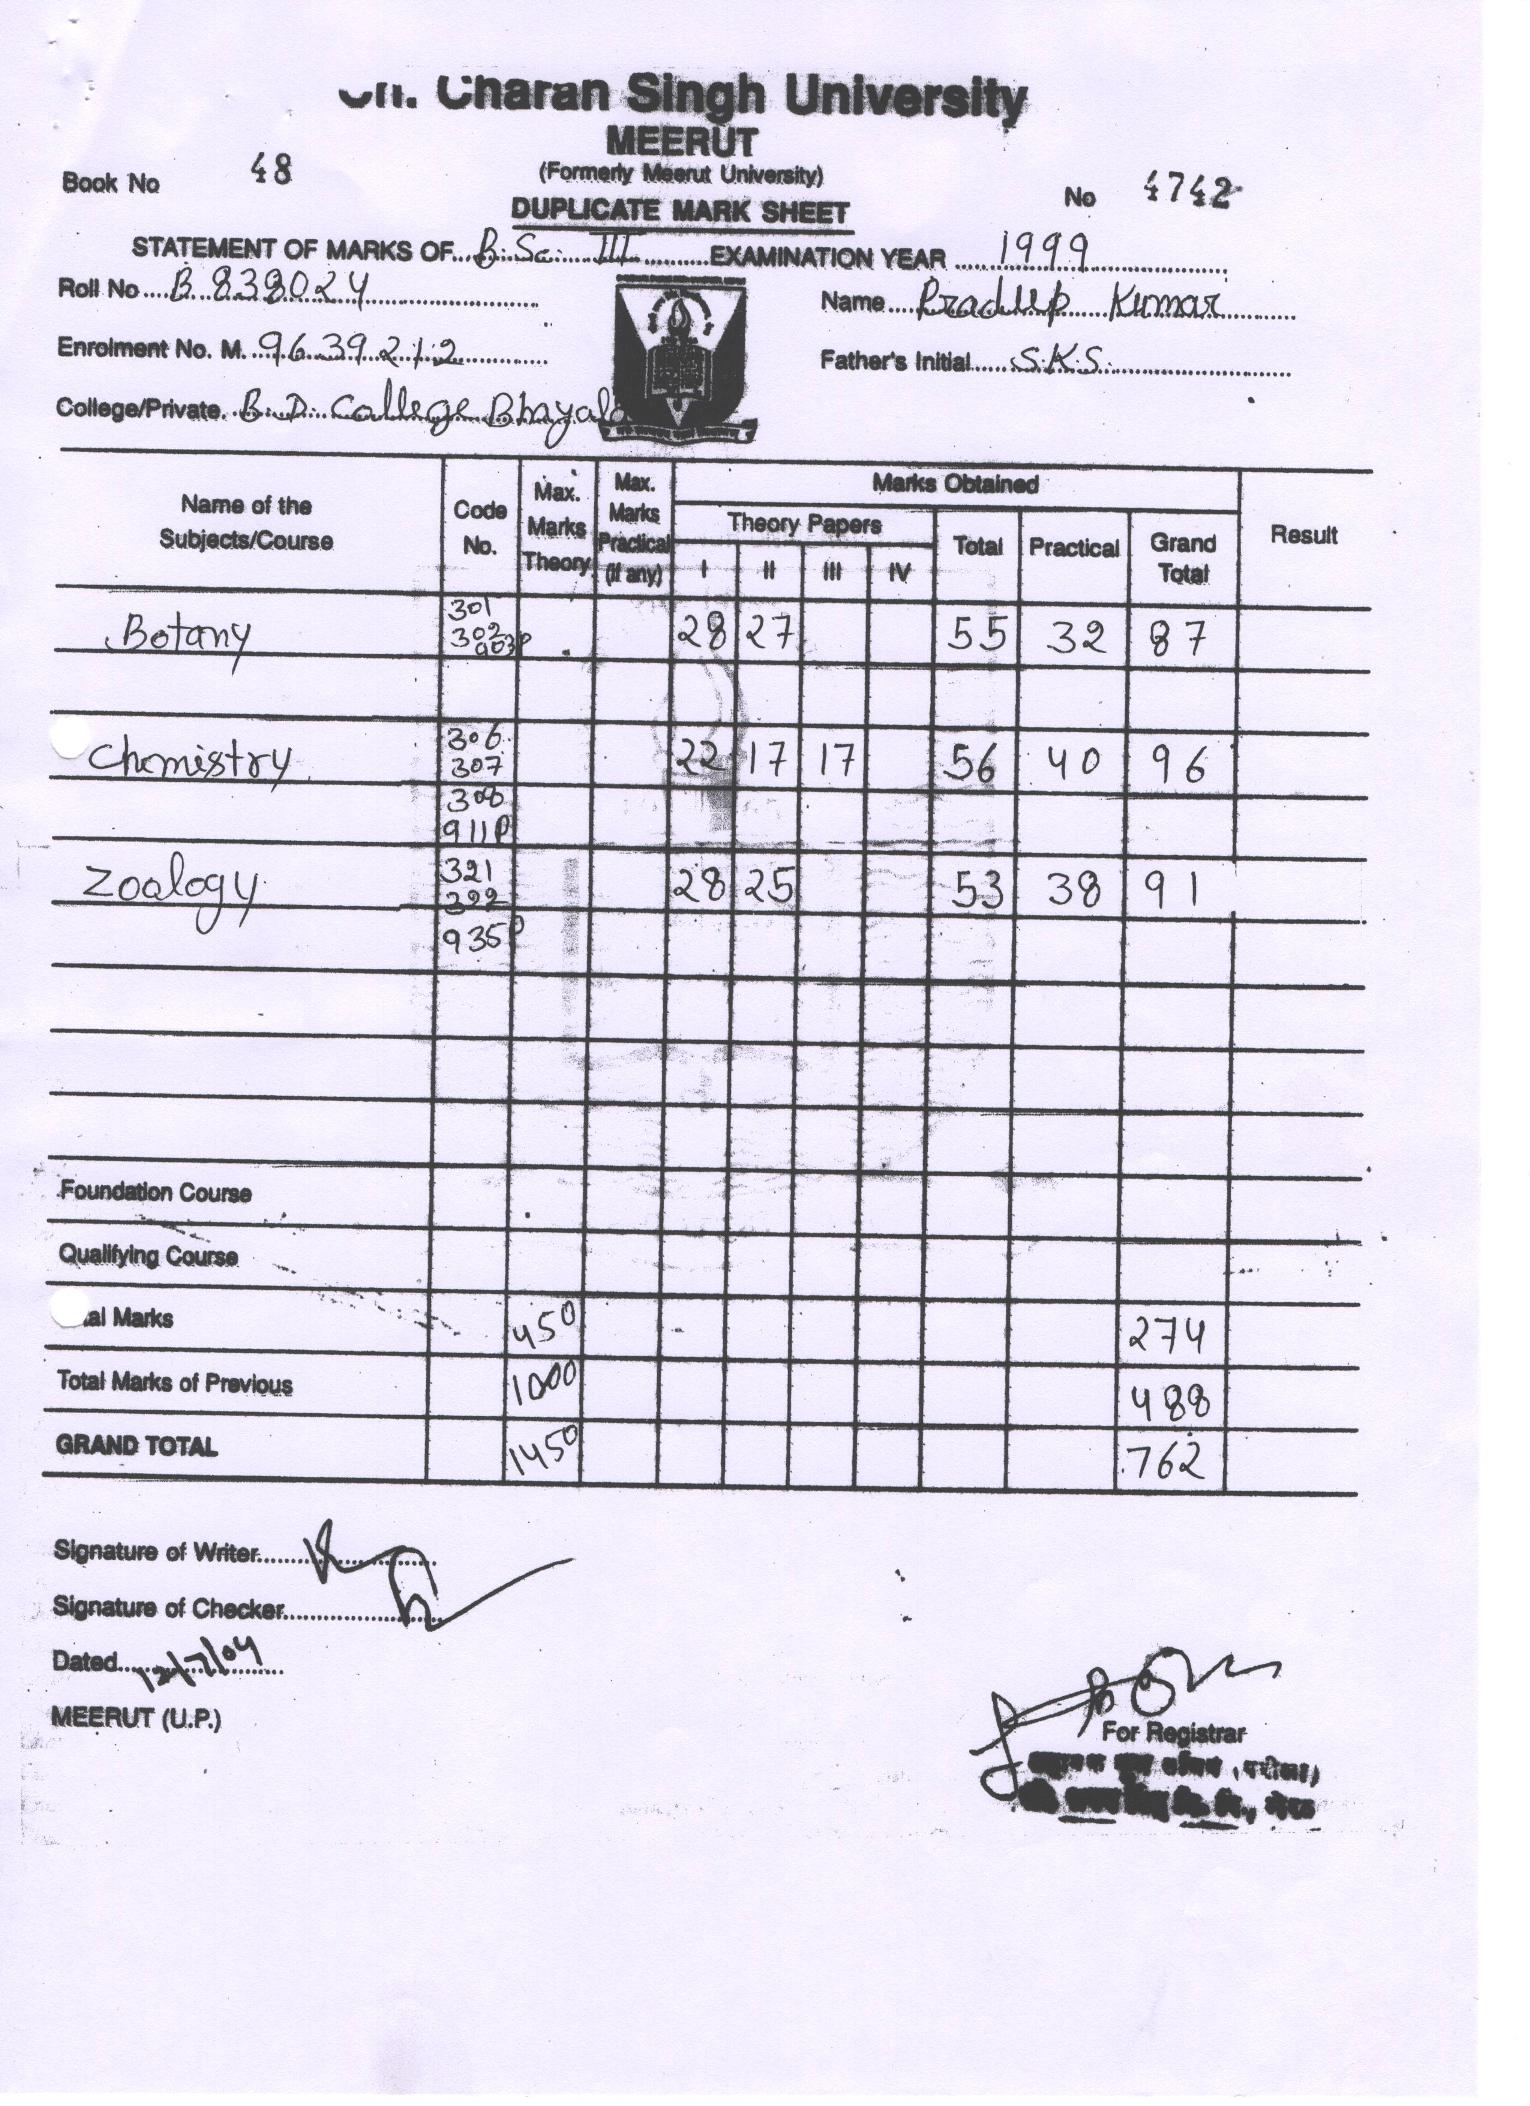 Ch. Charan Singh University
MEERUT
(Formerly Meerut University)
Book No 48
No 4742
DUPLICATE MARK SHEET
STATEMENT OF MARKS OF B.Sc. III EXAMINATION YEAR 1999
Roll No B 838024
Name Pradeep Kumar
Enrolment No. M. 9639212
Father's Initial S.K.S.
College/Private. B.D. College Bhayala
Name of the Subjects/Course Code No. Max. Marks Theory Max. Marks Practical (if any) Marks Obtained Result
Theory Papers Total Practical Grand Total
I II III IV
Botany 301 302 903P 28 27 55 32 87
Chemistry 306 307 308 911P 22 17 17 56 40 96
Zoology 321 322 935P 28 25 53 38 91
Foundation Course
Qualifying Course
tal Marks 450 274
Total Marks of Previous 1000 488
GRAND TOTAL 1450 762
Signature of Writer
Signature of Checker
Dated 12/7/04
MEERUT (U.P.)
For Registrar